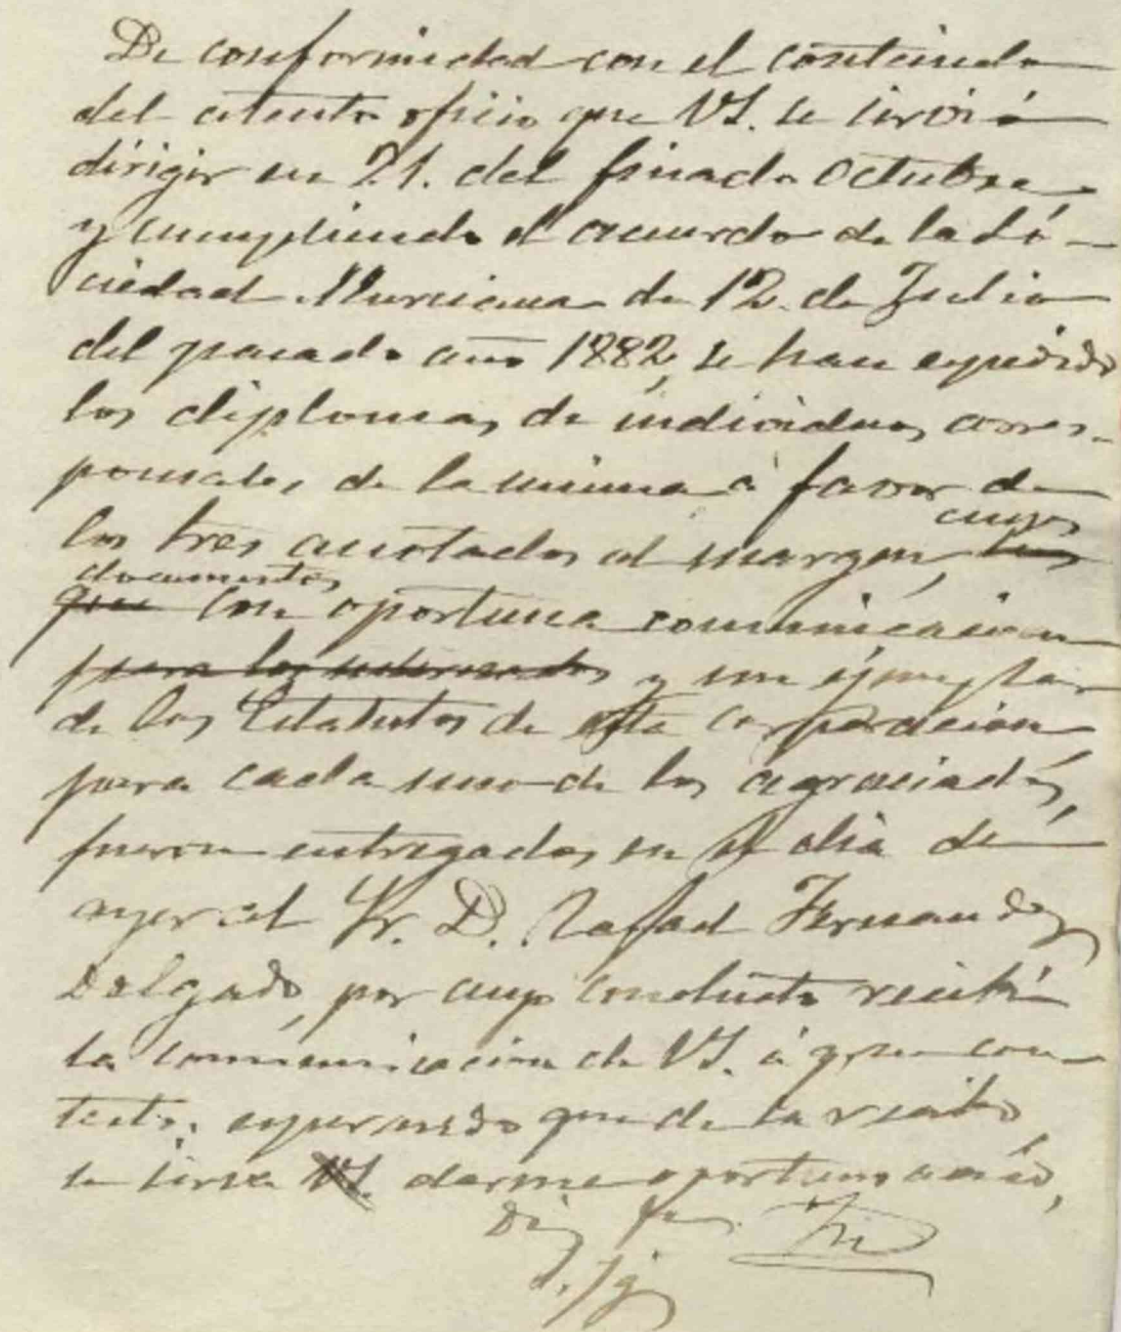 De conformidad con el contenido
del atento oficio que VS. se sirvió
dirigir en 21. del finado Octubre
y cumpliendo el acuerdo de la So-
ciedad Murciana de 12. de Julio
del pasado año 1882, se han expedido
los diplomas de individuos corres-
ponsales de la misma á favor de
cuyos
los tres anotados al margen, los
documentos
que con oportuna comunicacion
para los interesados y un ejemplar
de los Estatutos de esta corporacion
para cada uno de los agraciados,
fueron entregados en el dia de
ayer al Sr. D. Rafael Fernandez
Delgado, por cuyo conducto recibí
la comunicacion de VS. á que con-
testo, esperando que de su recibo
se sirva VS. darme oportuno aviso,
Dios